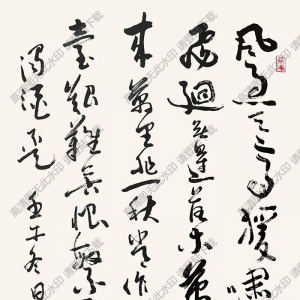 風急天高猿嘯
飛迴無邊落木蕭
来萬里悲秋常作
臺艱難苦恨繁
濁酒杯 壬午冬日